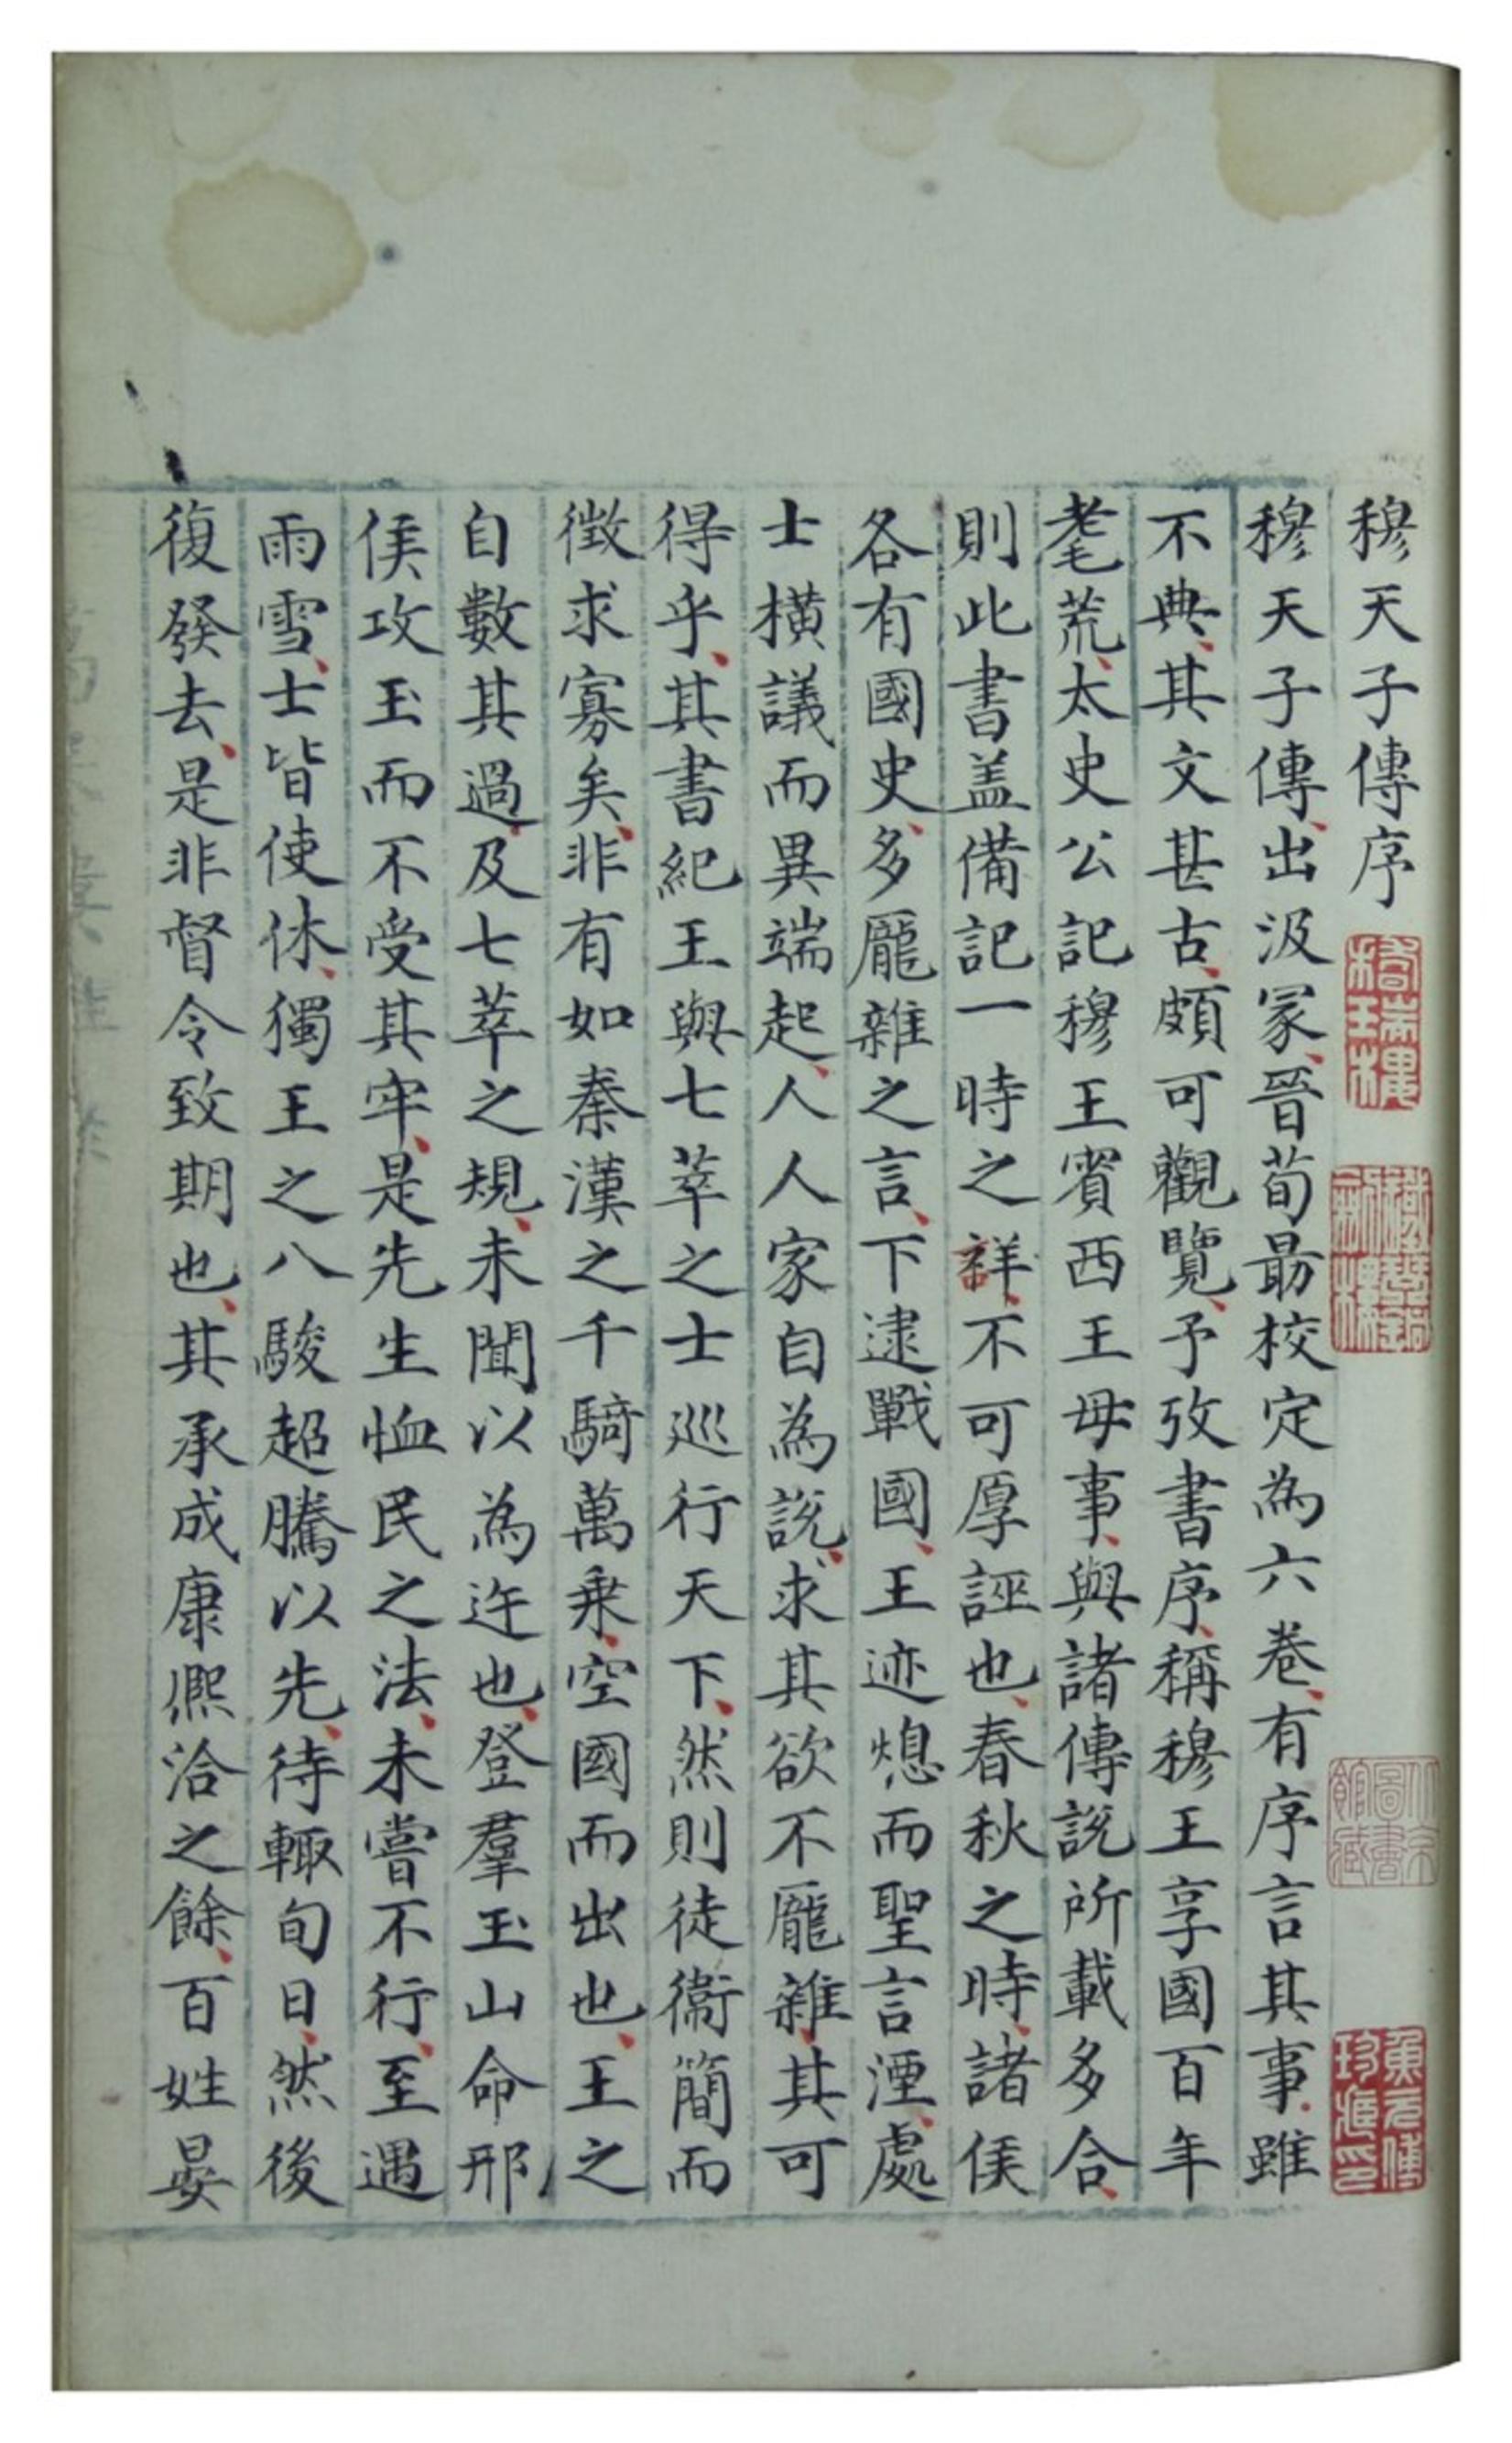 穆天子傳序
穆天子傳出汲冢晉荀勗校定為六卷有序言其事雖
不典其文甚古頗可觀覽予攷書序稱穆王享國百年
耄荒太史公記穆王賓西王母事與諸傳說所載多合
則此書盖備記一時之詳不可厚誣也春秋之時諸侯
各有國史多龎雜之言下逮戰國王迹熄而聖言湮處
士橫議而異端起人人家自為說求其欲不龎雜其可
得乎其書紀王與七萃之士巡行天下然則徒衞簡而
徵求寡矣非有如秦漢之千騎萬乗空國而出也王之
自數其過及七萃之規未聞以為迕也登羣玉山命邢
侯攻玉而不受其牢是先生恤民之法未嘗不行至遇
雨雪士皆使休獨王之八駿超騰以先待輙旬日然後
復發去是非督令致期也其承成康熈洽之餘百姓晏